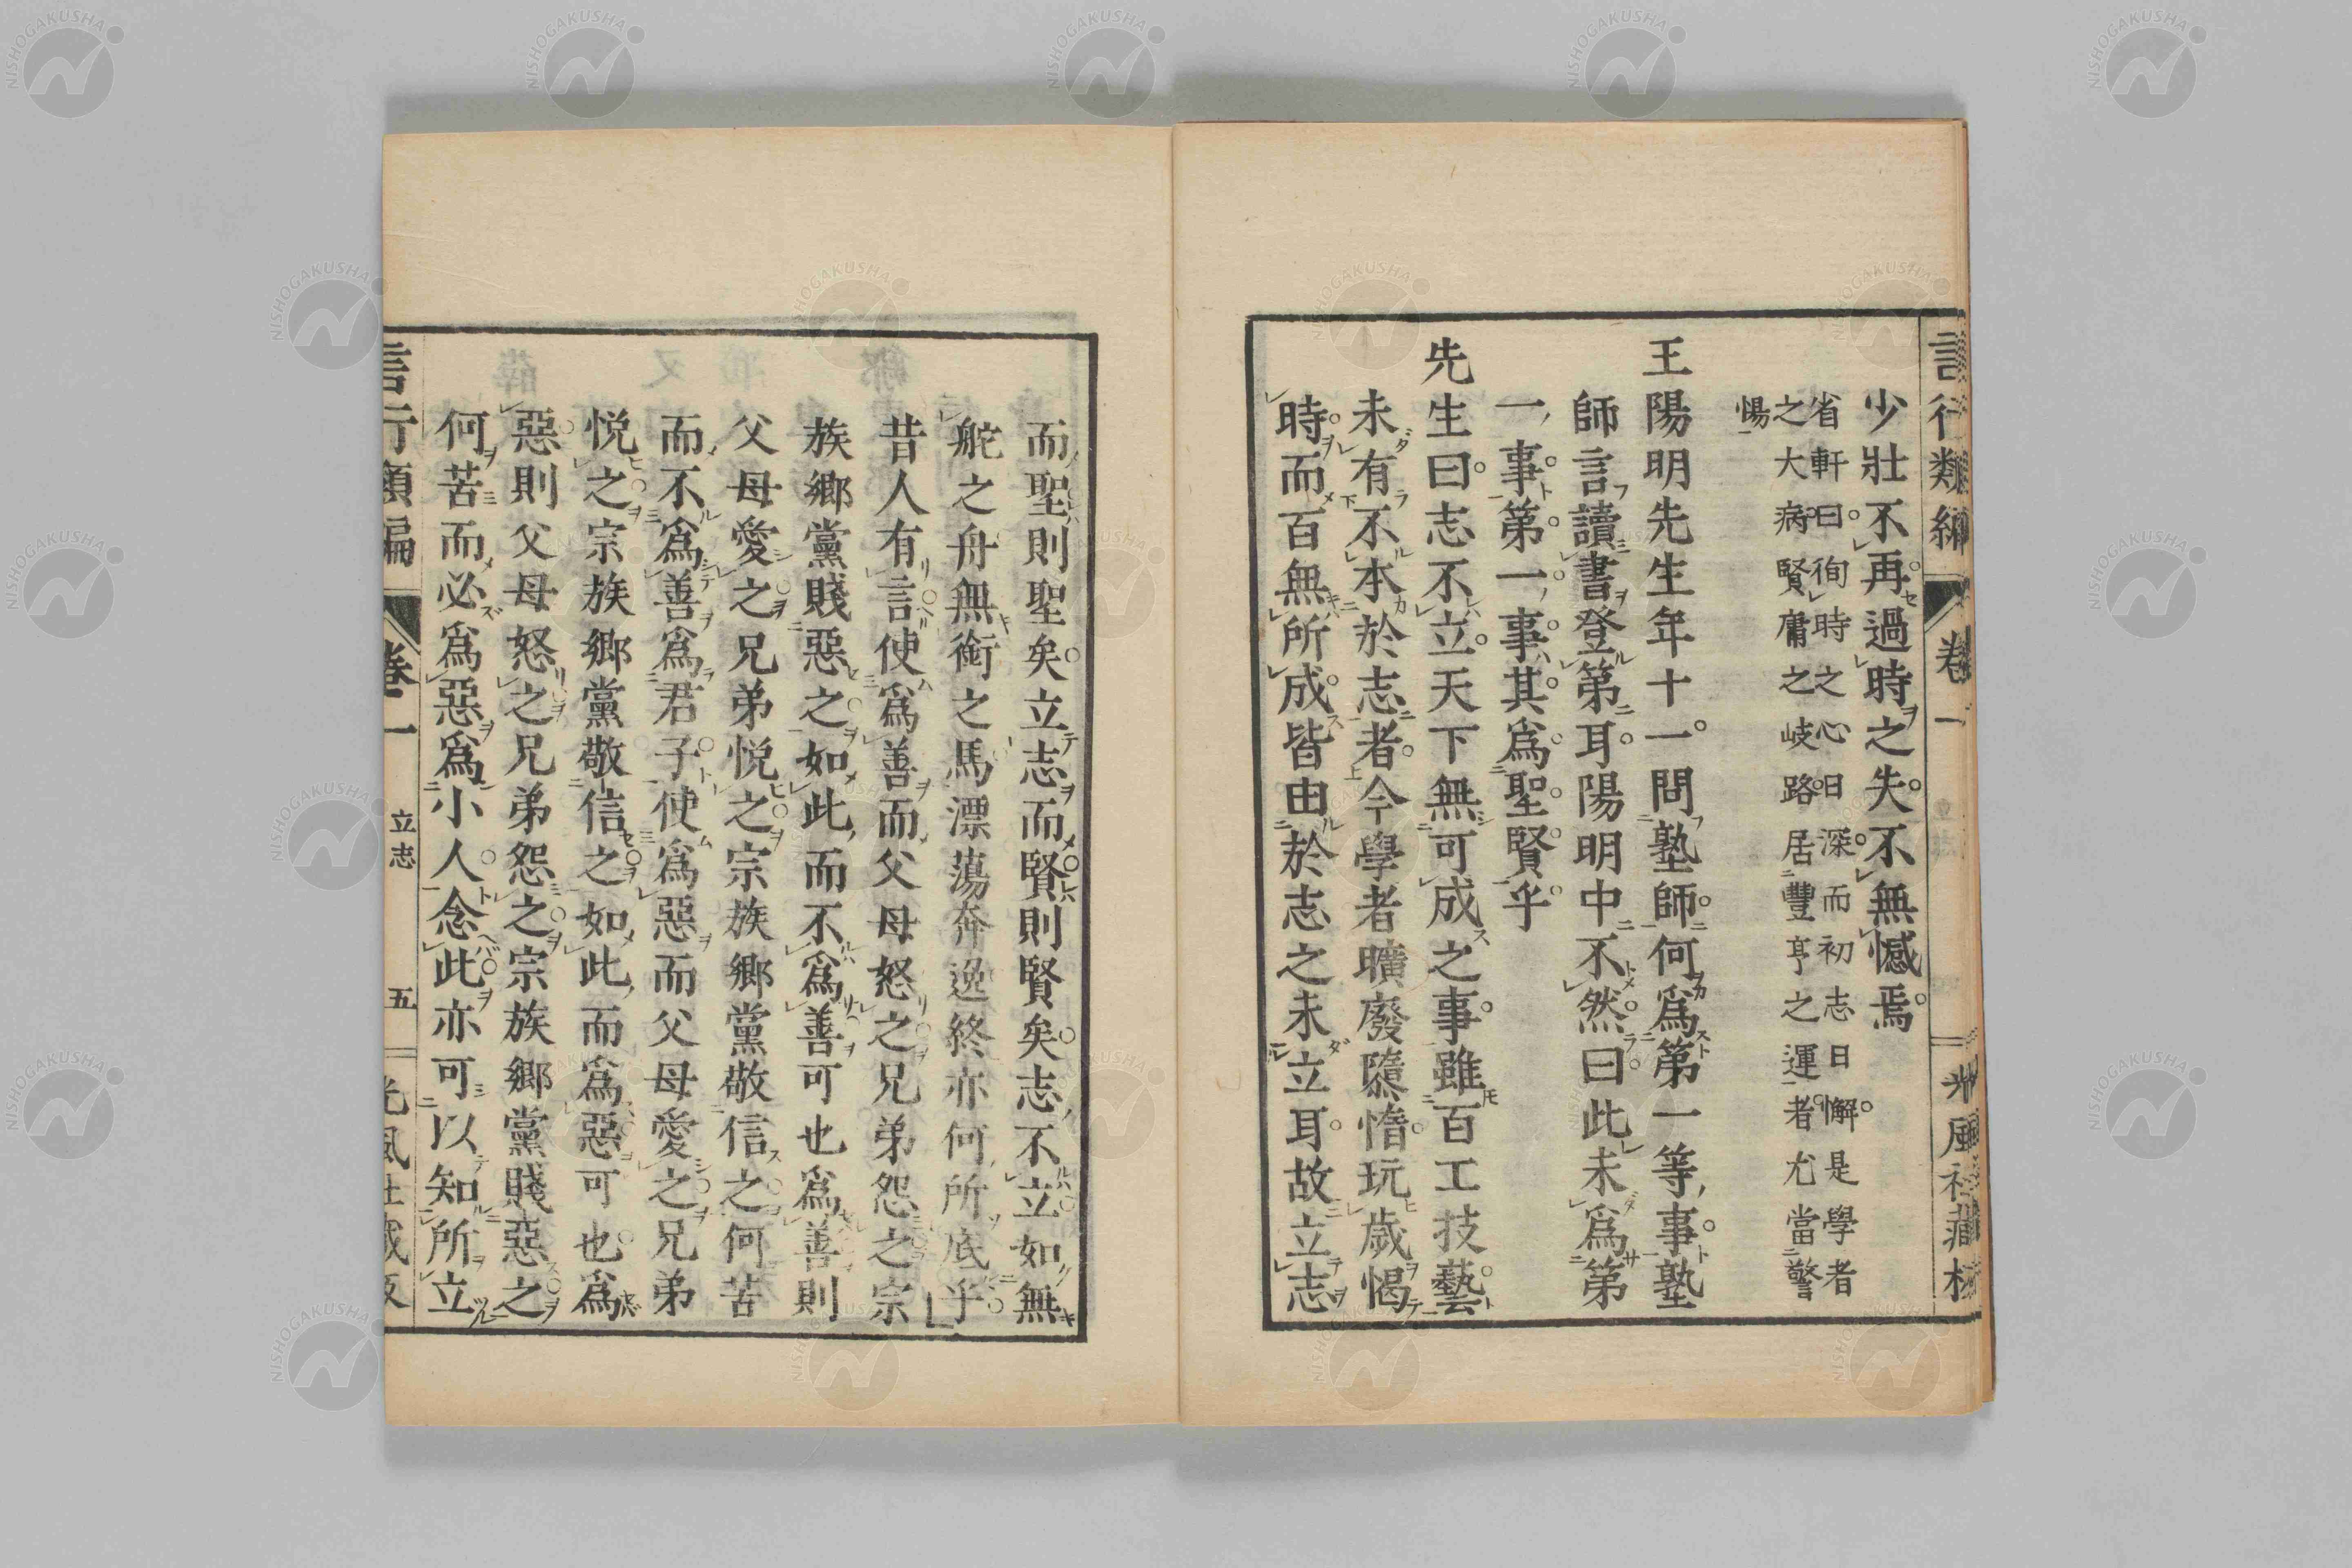 言行類編 卷一 光風社藏板
少壯不再過時之失不無憾焉
省軒曰徇時之心日深而初志日懈是學者
之大病賢庸之岐路居豐亨之運者尤當警
惕
王陽明先生年十一問塾師何爲第一等事塾
師言讀書登第耳陽明中不然曰此未爲第
一事第一事其爲聖賢乎
先生曰志不立天下無可成之事雖百工技藝
未有不本於志者今學者曠廢隳惰玩歲愒
時而百無所成皆由於志之未立耳故立志
而聖則聖矣立志而賢則賢矣志不立如無
舵之舟無銜之馬漂蕩奔逸終亦何所底乎
昔人有言使爲善而父母怒之兄弟怨之宗
族鄉黨賤惡之如此而不爲善可也爲善則
父母愛之兄弟悅之宗族鄉黨敬信之何苦
而不爲善爲君子使爲惡而父母愛之兄弟
悅之宗族鄉黨敬信之如此而爲惡可也爲
惡則父母怒之兄弟怨之宗族鄉黨賤惡之
何苦而必爲惡爲小人念此亦可以知所立
言行類編 卷一 立志 五 光風社藏板
NISHOGAKUSHA